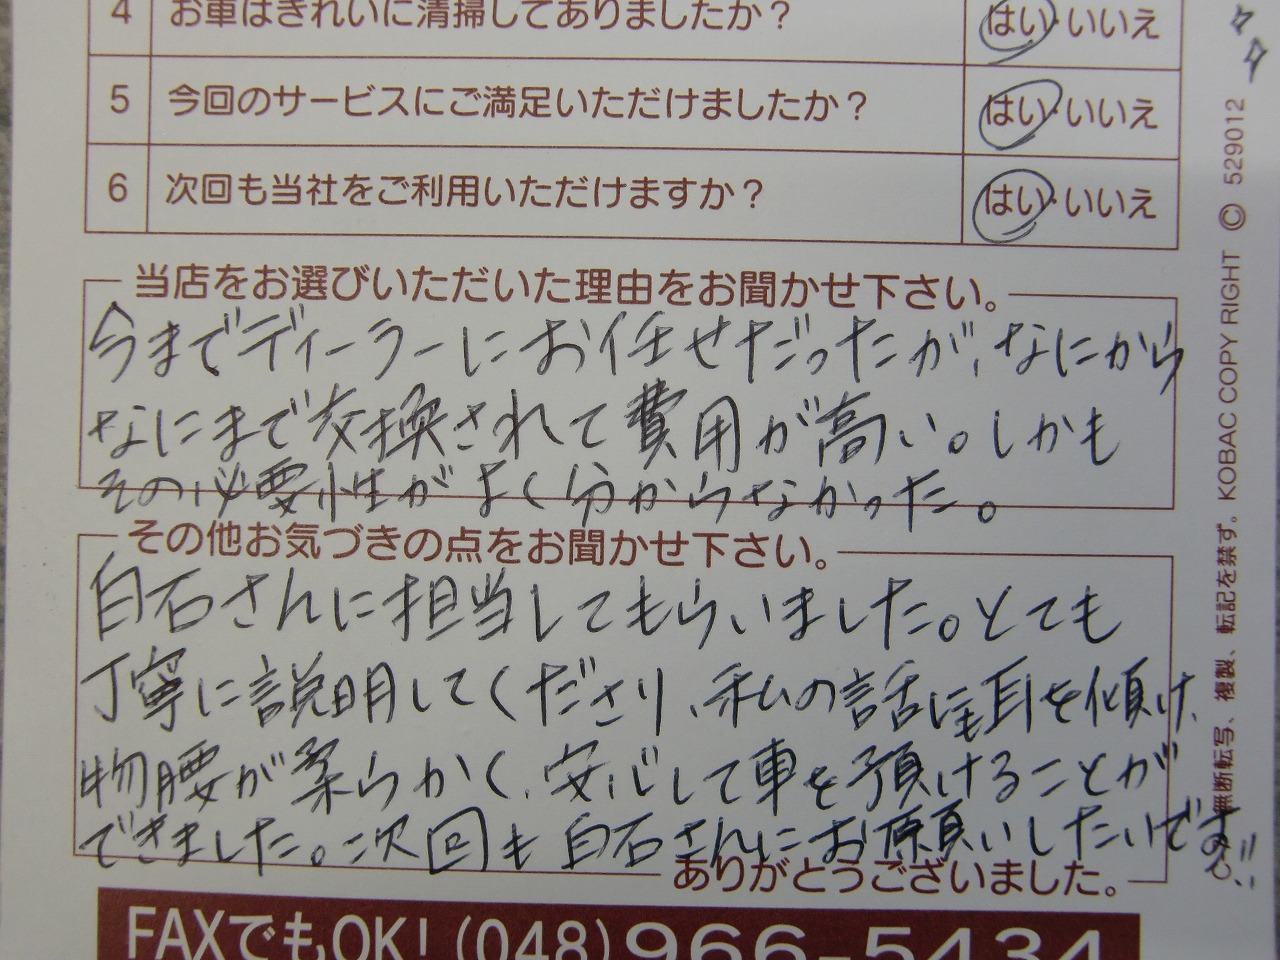 4 お車はきれいに清掃してありましたか? はい・いいえ
5 今回のサービスにご満足いただけましたか? はい・いいえ
6 次回も当社をご利用いただけますか? はい・いいえ
当店をお選びいただいた理由をお聞かせ下さい。
今までディーラーにお任せだったが、なにから
なにまで交換されて費用が高い。しかも
その必要性がよく分からなかった。
その他お気づきの点をお聞かせ下さい。
白石さんに担当してもらいました。とても
丁寧に説明してくださり、私の話にも耳を傾け、
物腰が柔らかく、安心して車を預けることが
できました。次回も白石さんにお願いしたいです!!
ありがとうございました。
FAXでもOK!(048)966-5434
無断転写、複製、転記を禁ず。KOBAC COPY RIGHT © 529012